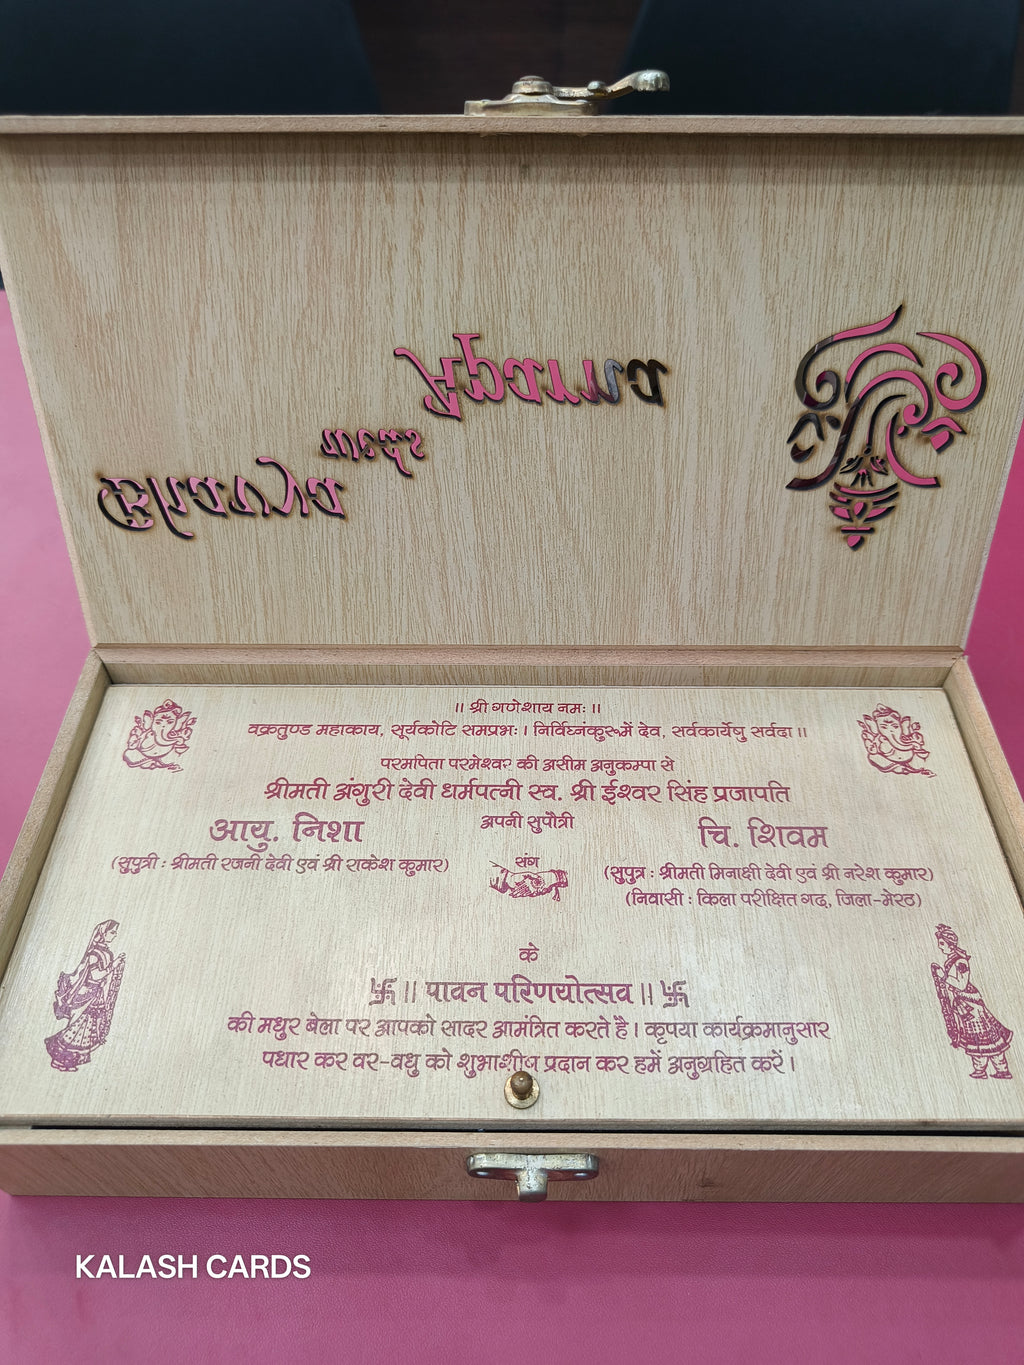 || श्री गणेशाय नमः ||
वक्रतुण्ड महाकाय, सूर्यकोटि समप्रभः। निर्विघ्नंकुरूमें देव, सर्वकार्येषु सर्वदा ||
परमपिता परमेश्वर की असीम अनुकम्पा से
श्रीमती अंगुरी देवी धर्मपत्नी स्व. श्री ईश्वर सिंह प्रजापति
अपनी सुपौत्री
आयु. निशा
(सुपुत्री : श्रीमती रजनी देवी एवं श्री राकेश कुमार)
संग
चि. शिवम
(सुपुत्र : श्रीमती मिनाक्षी देवी एवं श्री नरेश कुमार)
(निवासी : किला परीक्षित गढ़, जिला-मेरठ)
के
卐 || पावन परिणयोत्सव || 卐
की मधुर बेला पर आपको सादर आमंत्रित करते है। कृपया कार्यक्रमानुसार
पधार कर वर-वधु को शुभाशीष प्रदान कर हमें अनुग्रहित करें।
KALASH CARDS